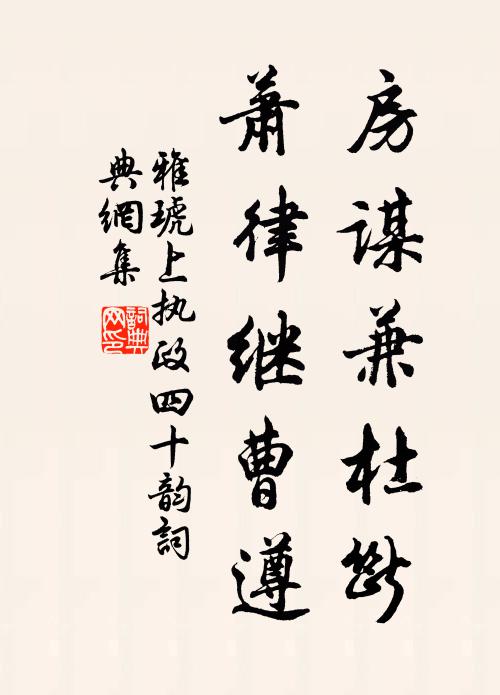 房谋兼杜断
萧律继曹遵
雅琥上执政四十韵词
典网集
词典
网印